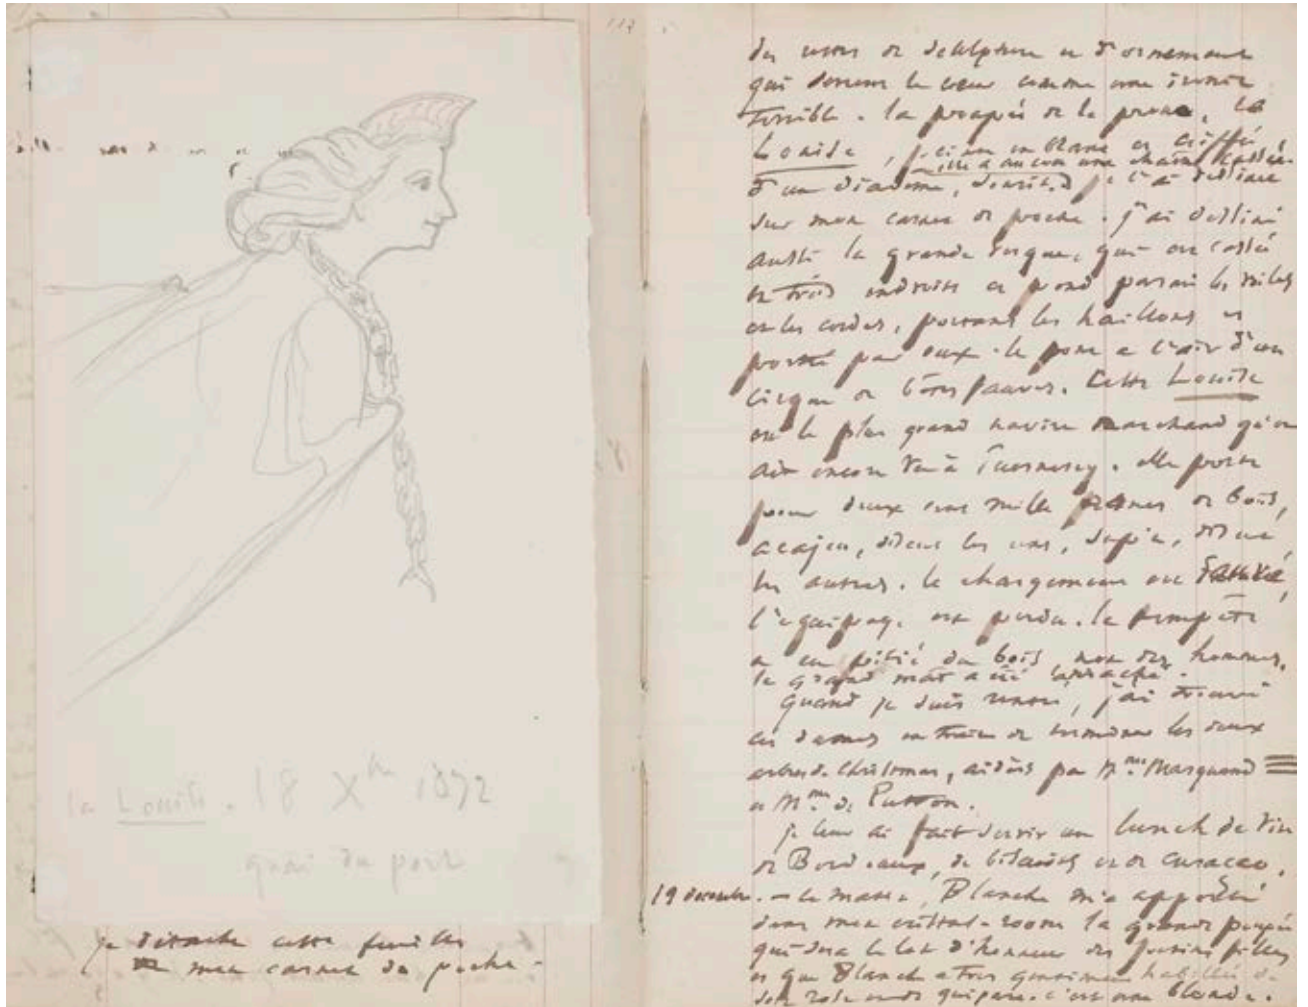 117
la Louise. 18 Xbre 1872
quai du port
je détache cette feuille
de mon carnet de poche.
des restes de sculpture et d'ornement
qui serrent le cœur comme une ironie
terrible. la poupée de la proue, la
Louise, peinte en blanc et coiffée
elle a au cou une chaîne cassée.
d'un diadème, sourit. je l'ai dessinée
sur mon carnet de poche. j'ai dessiné
aussi la grande vergue, qui est cassée
en trois endroits et pend parmi les voiles
et les cordes, portant les haillons et
portée par eux. le pont a l'air d'un
cirque de bêtes fauves. Cette Louise
est le plus grand navire marchand qu'on
ait encore vu à Guernesey. elle porte
pour deux cent mille francs de bois,
acajou, disent les uns, sapin, disent
les autres. le chargement est sauvé,
l'équipage est perdu. la tempête
a eu pitié du bois, non des hommes.
le grand mât a été arraché.
Quand je suis rentré, j'ai trouvé
ces dames en train de terminer les deux
arbres de Christmas, aidées par Mme Marquand
et Mme de Putron.
je leur ai fait servir un lunch de vin
de Bordeaux, de biscuits et de curaçao.
19 décembre. — ce matin, Blanche m'a apporté
dans mon cristal-room la grande poupée
qui sera le lot d'honneur des petites filles
et que Blanche a très gentiment habillée de
soie rose et de guipure. c'est une blonde.